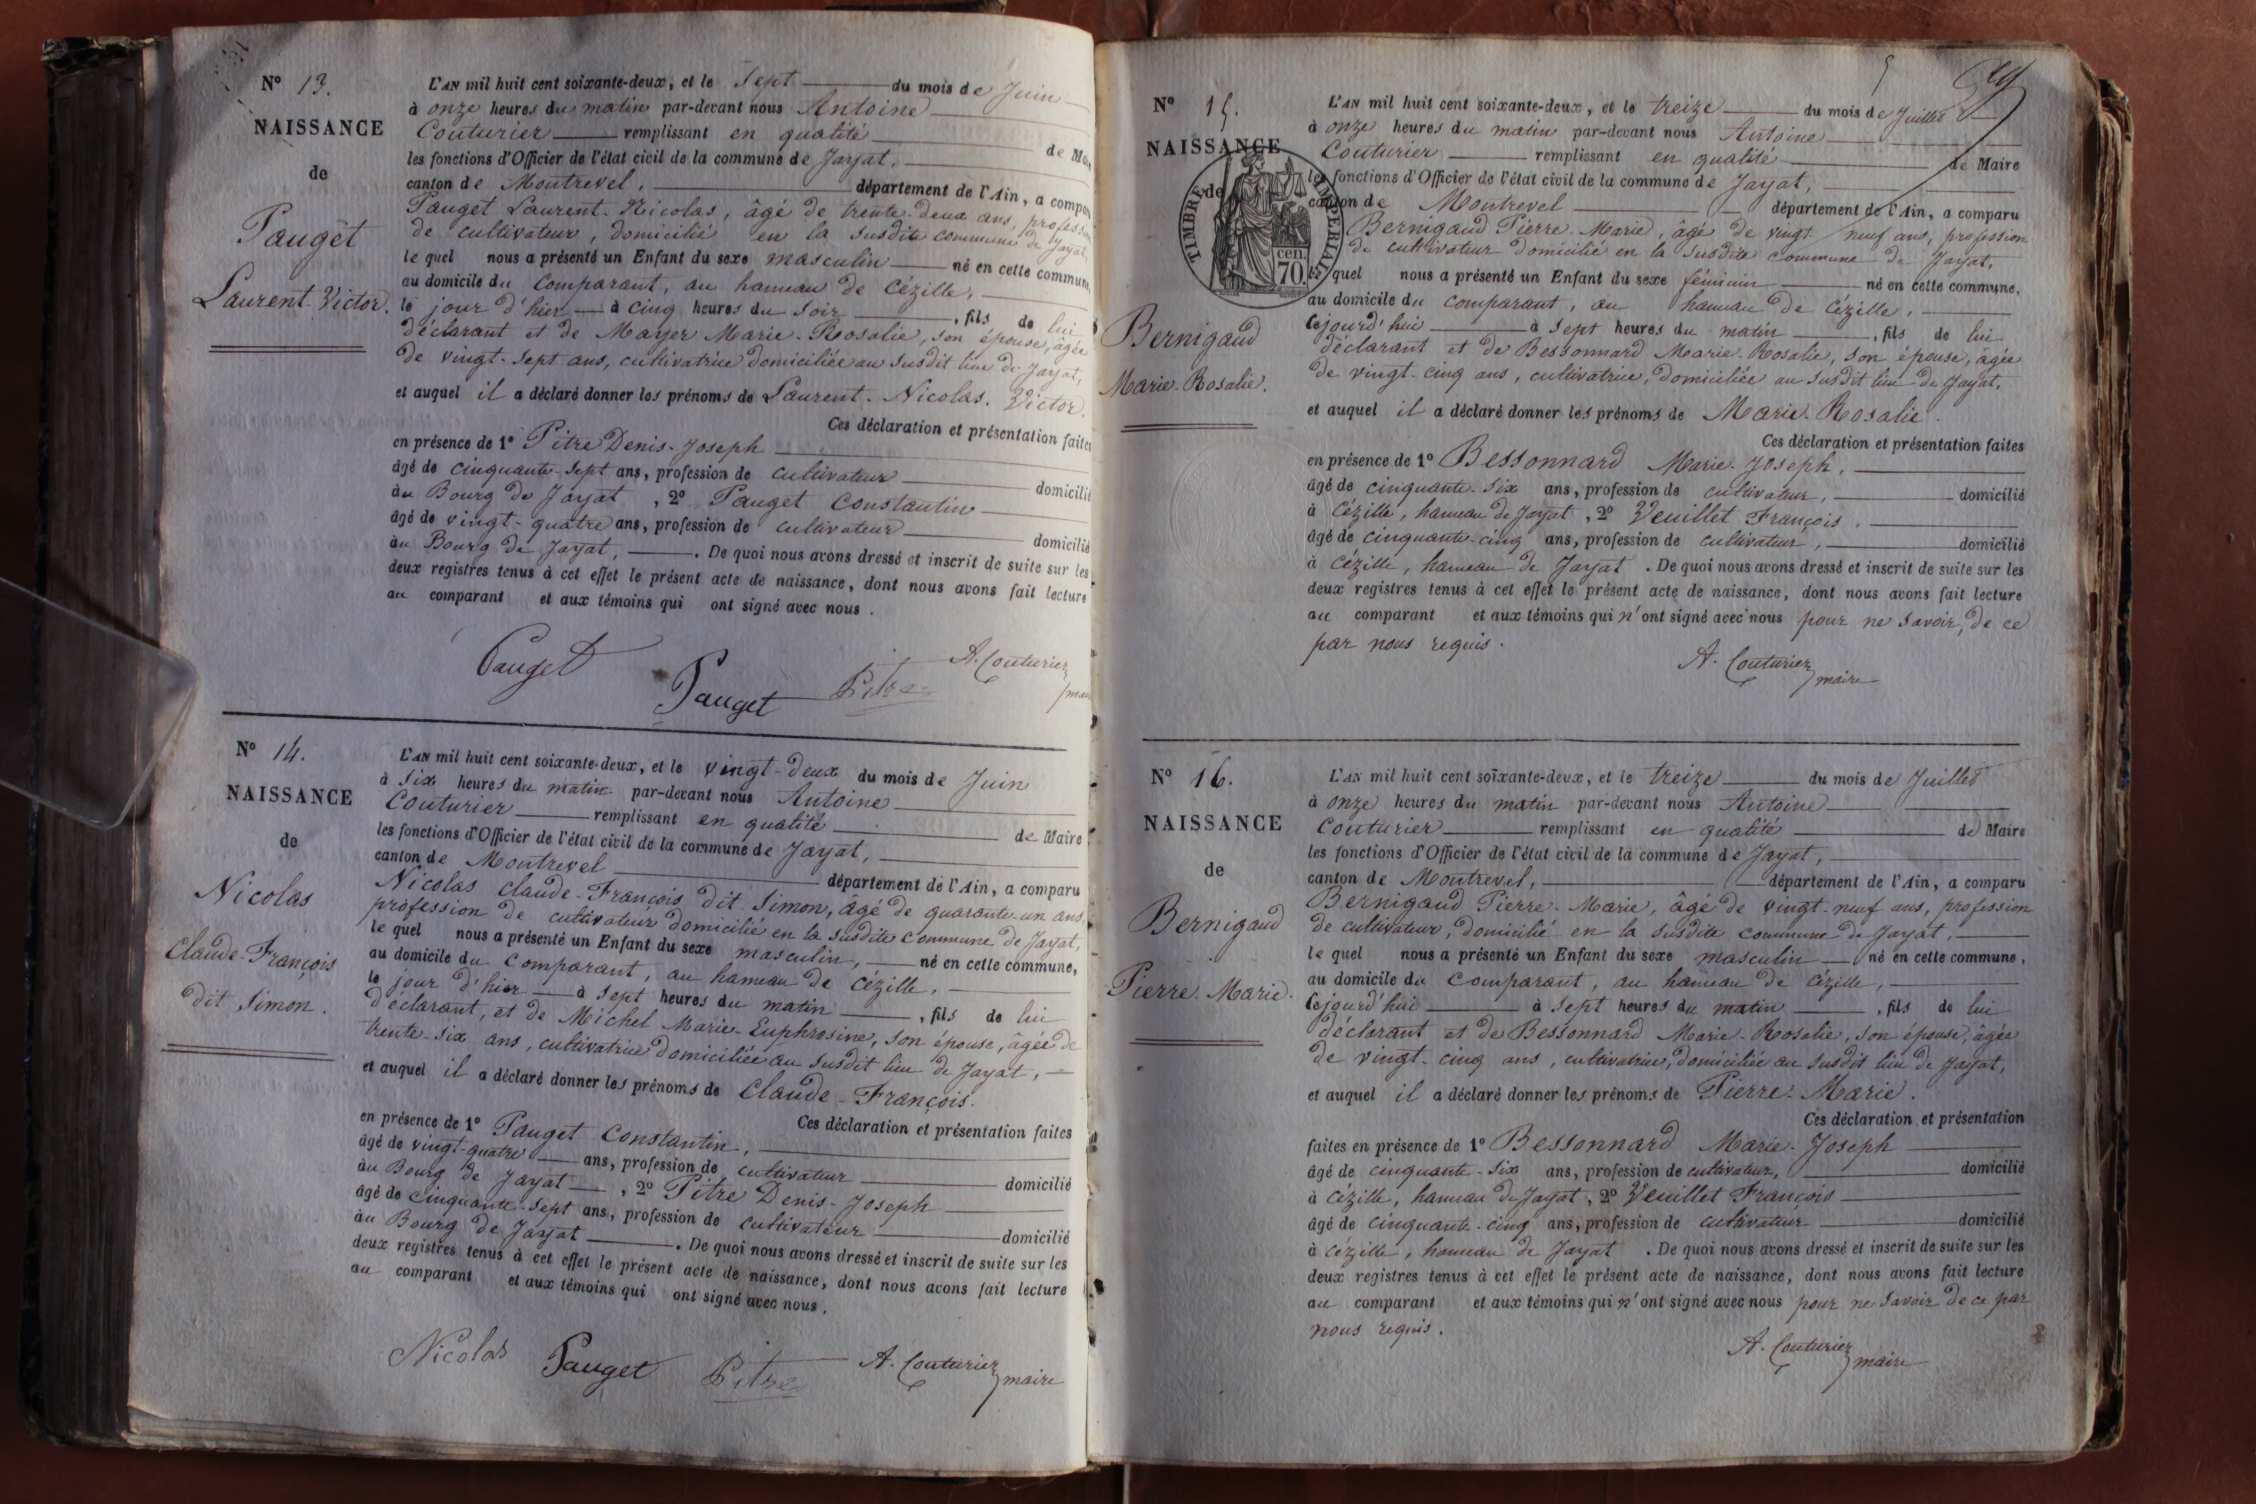 N° 13.
NAISSANCE
de
Pauget
Laurent-Victor.
L'AN mil huit cent soixante-deux, et le Sept du mois de Juin
à onze heures du matin par-devant nous Antoine
Couturier remplissant en qualité de Mai
les fonctions d'Officier de l'état civil de la commune de Jayat,
canton de Montrevel, département de l'Ain, a comparu
Pauget Laurent-Nicolas, âgé de trente-deux ans, profession
de cultivateur, domicilié en la susdite commune de Jayat,
le quel nous a présenté un Enfant du sexe masculin né en cette commune,
au domicile du comparant, au hameau de Cézille,
le jour d'hier à cinq heures du soir, fils de lui
déclarant et de Mayer Marie-Rosalie, son épouse, âgée
de vingt-sept ans, cultivatrice domiciliée au susdit lieu de Jayat,
et auquel il a déclaré donner les prénoms de Laurent-Nicolas. Victor.
Ces déclaration et présentation faites
en présence de 1° Pitre Denis-Joseph
âgé de cinquante-sept ans, profession de cultivateur domicilié
au Bourg de Jayat, 2° Pauget Constantin
âgé de vingt-quatre ans, profession de cultivateur domicilié
au Bourg de Jayat, . De quoi nous avons dressé et inscrit de suite sur les
deux registres tenus à cet effet le présent acte de naissance, dont nous avons fait lecture
au comparant et aux témoins qui ont signé avec nous.
Pauget Pauget Pitre A. Couturier
maire
N° 14.
NAISSANCE
de
Nicolas
Claude-François
dit Simon.
L'AN mil huit cent soixante-deux, et le vingt-deux du mois de Juin
à six heures du matin par-devant nous Antoine
Couturier remplissant en qualité de Maire
les fonctions d'Officier de l'état civil de la commune de Jayat,
canton de Montrevel département de l'Ain, a comparu
Nicolas Claude-François dit Simon, âgé de quarante-un ans
profession de cultivateur domicilié en la susdite commune de Jayat,
le quel nous a présenté un Enfant du sexe masculin, né en cette commune,
au domicile du comparant, au hameau de Cézille,
le jour d'hier à sept heures du matin, fils de lui
déclarant, et de Michel Marie-Euphrosine, son épouse, âgée de
trente-six ans, cultivatrice domiciliée au susdit lieu de Jayat,
et auquel il a déclaré donner les prénoms de Claude-François.
Ces déclaration et présentation faites
en présence de 1° Pauget Constantin,
âgé de vingt-quatre ans, profession de cultivateur domicilié
au Bourg de Jayat, 2° Pitre Denis-Joseph
âgé de cinquante-sept ans, profession de cultivateur domicilié
au Bourg de Jayat . De quoi nous avons dressé et inscrit de suite sur les
deux registres tenus à cet effet le présent acte de naissance, dont nous avons fait lecture
au comparant et aux témoins qui ont signé avec nous.
Nicolas Pauget Pitre A. Couturier
maire
N° 15.
NAISSANCE
de
TIMBRE IMPERIAL
70 cen.
Bernigaud
Marie-Rosalie.
L'AN mil huit cent soixante-deux, et le treize du mois de Juillet
à onze heures du matin par-devant nous Antoine
Couturier remplissant en qualité de Maire
les fonctions d'Officier de l'état civil de la commune de Jayat,
canton de Montrevel département de l'Ain, a comparu
Bernigaud Pierre-Marie, âgé de vingt neuf ans, profession
de cultivateur domicilié en la susdite commune de Jayat,
le quel nous a présenté un Enfant du sexe féminin né en cette commune,
au domicile du comparant, au hameau de Cézille,
Cejourd'hui à sept heures du matin, fils de lui
déclarant et de Bessonnard Marie-Rosalie, son épouse, âgée
de vingt-cinq ans, cultivatrice, domiciliée au susdit lieu de Jayat,
et auquel il a déclaré donner les prénoms de Marie-Rosalie.
Ces déclaration et présentation faites
en présence de 1° Bessonnard Marie-Joseph,
âgé de cinquante-six ans, profession de cultivateur, domicilié
à Cézille, hameau de Jayat, 2° Veuillet François.
âgé de cinquante-cinq ans, profession de cultivateur, domicilié
à Cézille, hameau de Jayat . De quoi nous avons dressé et inscrit de suite sur les
deux registres tenus à cet effet le présent acte de naissance, dont nous avons fait lecture
au comparant et aux témoins qui n'ont signé avec nous pour ne savoir, de ce
par nous requis.
A. Couturier
maire
N° 16.
NAISSANCE
de
Bernigaud
Pierre-Marie.
L'AN mil huit cent soixante-deux, et le treize du mois de Juillet
à onze heures du matin par-devant nous Antoine
Couturier remplissant en qualité de Maire
les fonctions d'Officier de l'état civil de la commune de Jayat,
canton de Montrevel, département de l'Ain, a comparu
Bernigaud Pierre-Marie, âgé de vingt-neuf ans, profession
de cultivateur, domicilié en la susdite commune de Jayat,
le quel nous a présenté un Enfant du sexe masculin né en cette commune,
au domicile du comparant, au hameau de Cézille,
Cejourd'hui à sept heures du matin, fils de lui
déclarant et de Bessonnard Marie-Rosalie, son épouse, âgée
de vingt-cinq ans, cultivatrice, domiciliée au susdit lieu de Jayat,
et auquel il a déclaré donner les prénoms de Pierre-Marie.
Ces déclaration et présentation
faites en présence de 1° Bessonnard Marie-Joseph
âgé de cinquante-six ans, profession de cultivateur, domicilié
à Cézille, hameau de Jayat, 2° Veuillet François
âgé de cinquante-cinq ans, profession de cultivateur domicilié
à Cézille, hameau de Jayat . De quoi nous avons dressé et inscrit de suite sur les
deux registres tenus à cet effet le présent acte de naissance, dont nous avons fait lecture
au comparant et aux témoins qui n'ont signé avec nous pour ne savoir de ce par
nous requis.
A. Couturier
maire